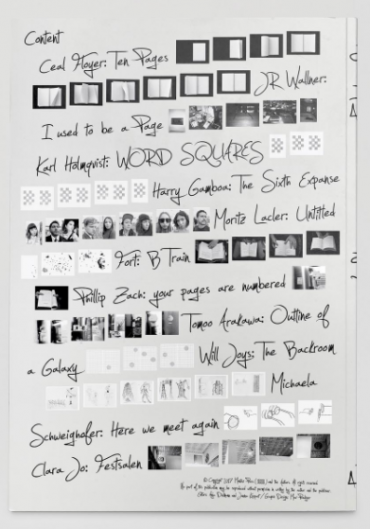 Content
Ceal Floyer: Ten Pages
JR Wallner:
I used to be a Page
Karl Holmqvist: WORD SQUARES
Harry Gamboa: The Sixth Expanse
Moritz Lacler: Untitled
Fort: B Train
Phillip Zach: your pages are numbered
Tomoo Arakawa: Outline of
a Galaxy Will Joys: The Backroom
Michaela
Schweighöfer: Here we meet again
Clara Jo: Festsalen